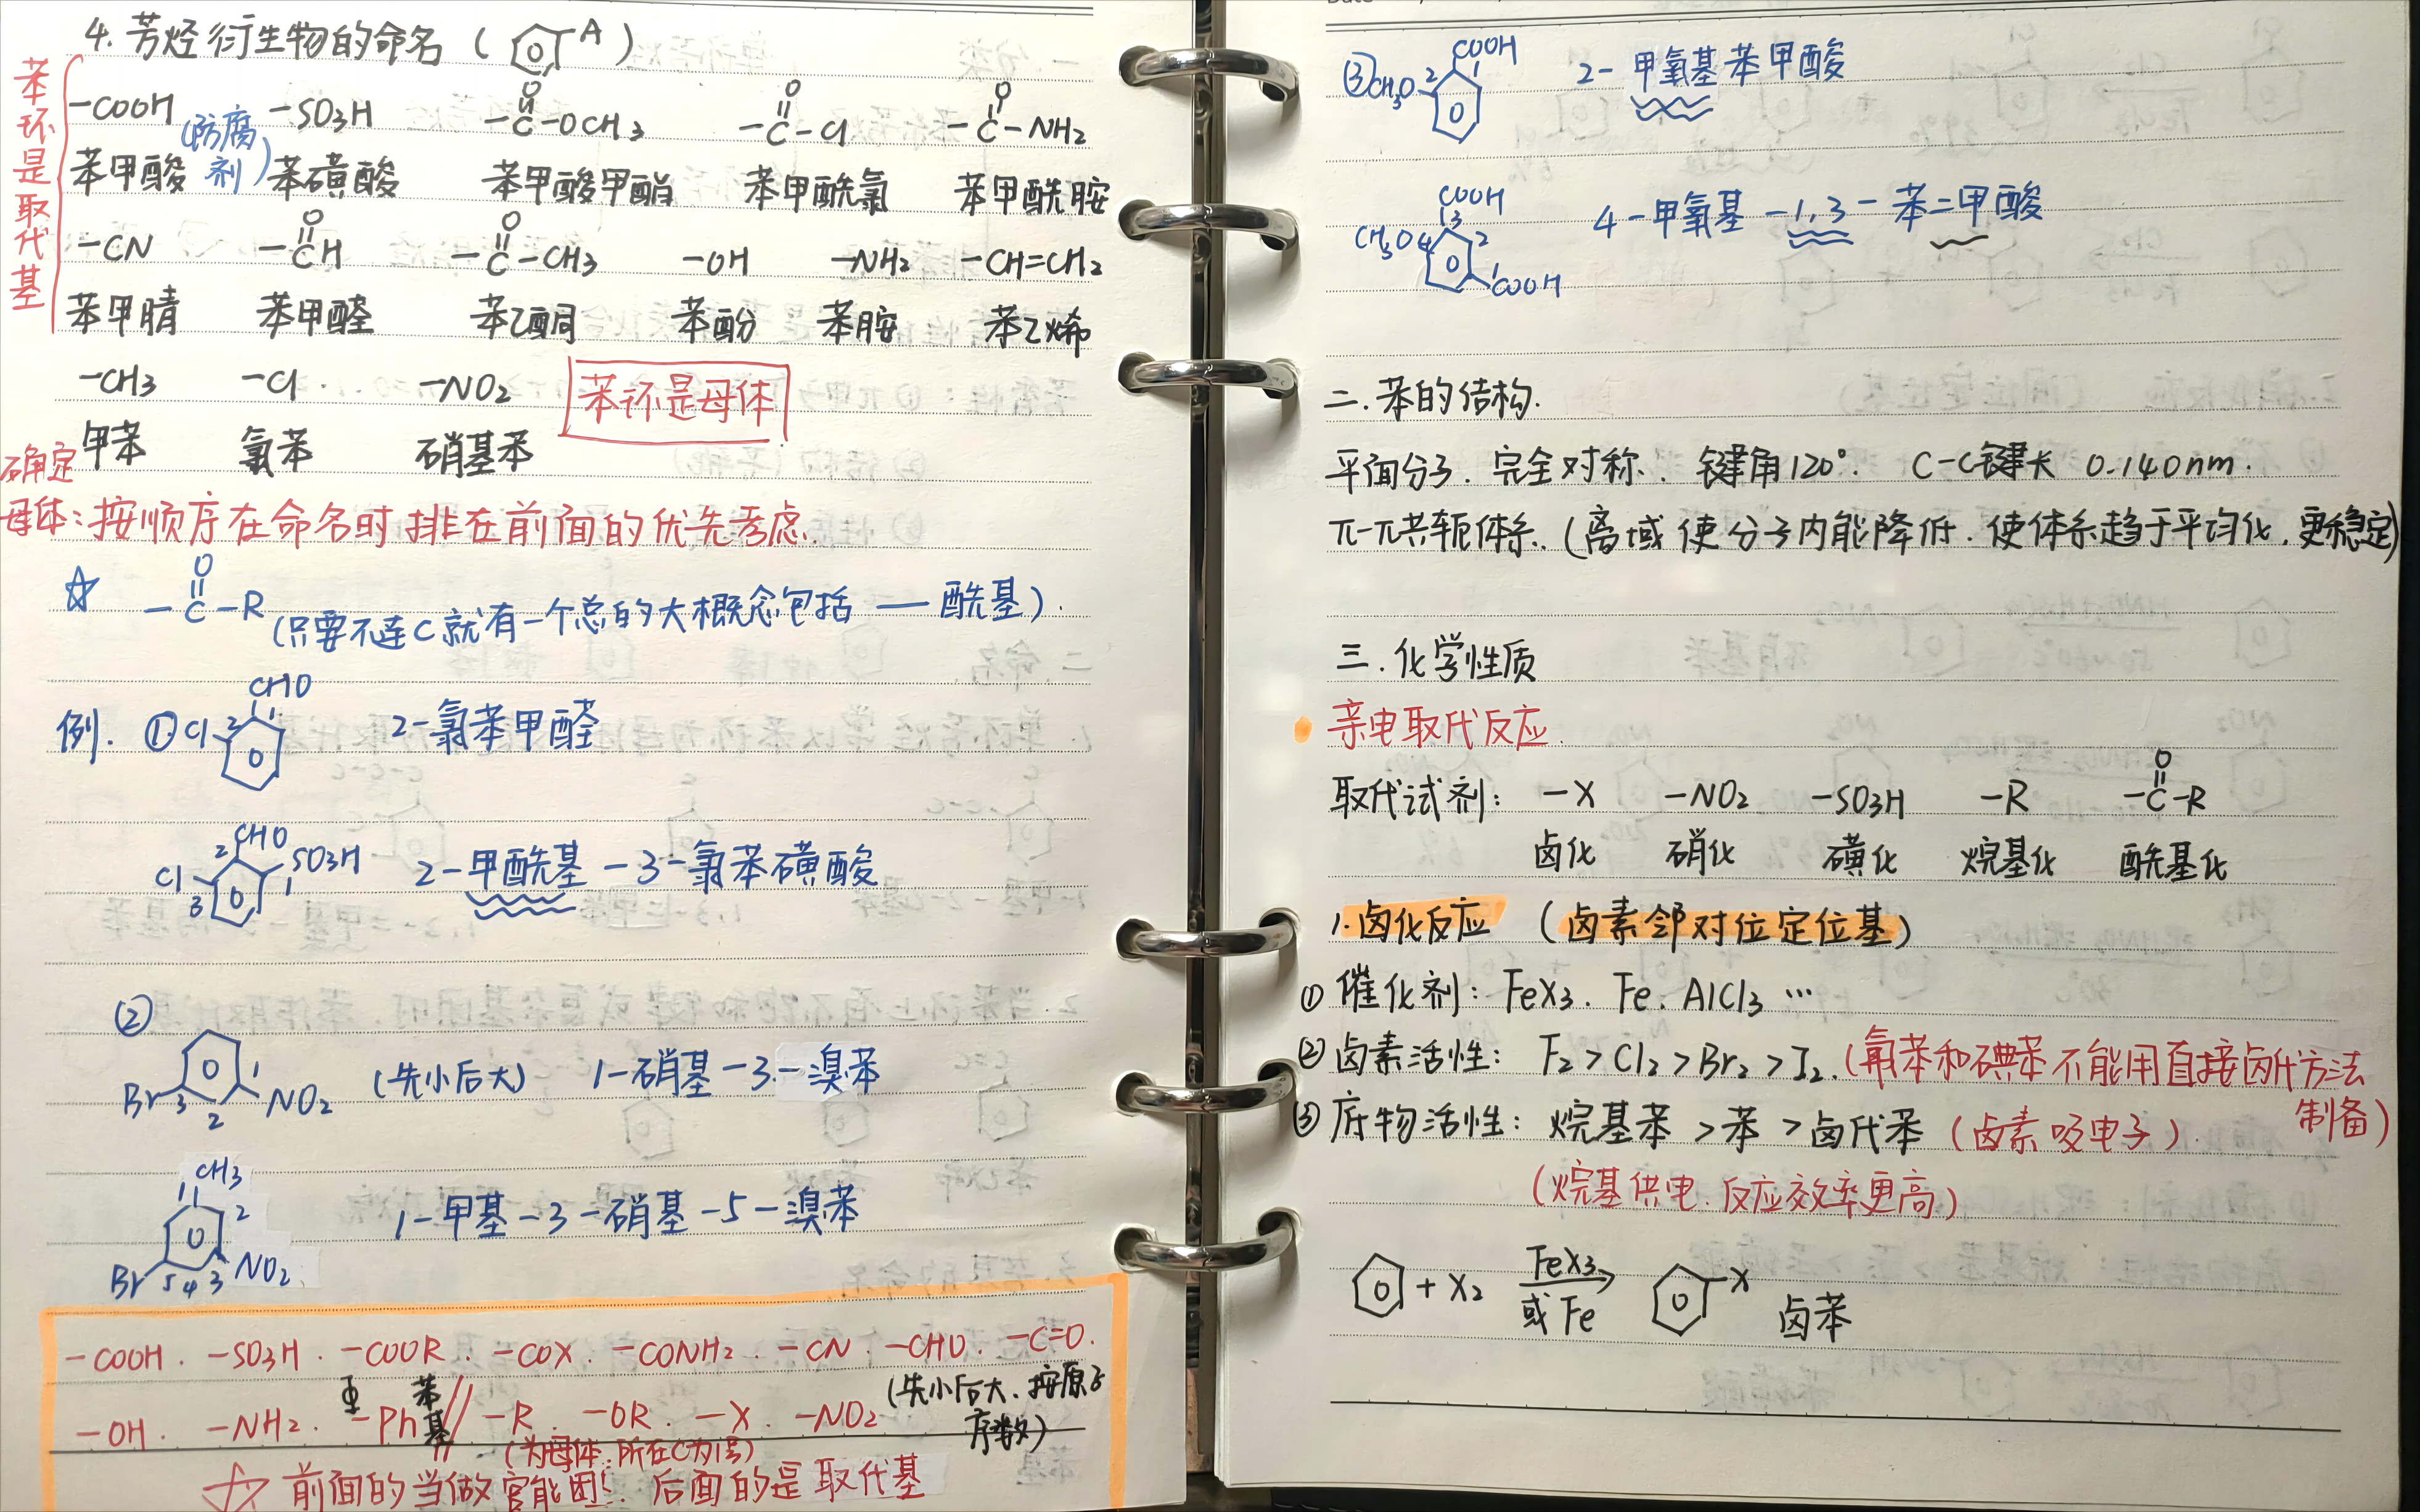 4. 芳烃衍生物的命名（ A ）
苯环是取代基
-COOH -SO3H -C-OCH3 -C-Cl -C-NH2
O O O
苯甲酸（防腐剂） 苯磺酸 苯甲酸甲酯 苯甲酰氯 苯甲酰胺
O O
-CN -CH -C-CH3 -OH -NH2 -CH=CH2
苯甲腈 苯甲醛 苯乙酮 苯酚 苯胺 苯乙烯
-CH3 -Cl. -NO2 苯环是母体
甲苯 氯苯 硝基苯
确定母体：按顺序在命名时排在前面的优先考虑.
O
☆ -C-R（只要不连C就有一个总的大概念包括——酰基）.
CHO
例. ① Cl 2 1 2-氯苯甲醛
2 CHO
Cl 3 SO3H 1 2-甲酰基-3-氯苯磺酸
②
Br 3 2 1 NO2 （先小后大） 1-硝基-3-溴苯
CH3
1 2 1-甲基-3-硝基-5-溴苯
Br 5 4 3 NO2
-COOH. -SO3H. -COOR. -COX. -CONH2. -CN. -CHO. -C=O.
（先小后大、按原子序数）
-OH. -NH2. -Ph 苯基 // -R. -OR. -X. -NO2
（为母体：所在C为1号）
☆ 前面的当做官能团！后面的是取代基
COOH
③ CH3O 2 1 2-甲氧基苯甲酸
COOH
3
CH3O 4 2 4-甲氧基-1,3-苯二甲酸
1 COOH
二.苯的结构.
平面分子. 完全对称. 键角120°. C-C键长 0.140nm.
π-π共轭体系.（离域使分子内能降低.使体系趋于平均化,更稳定）
三.化学性质
亲电取代反应.
O
取代试剂： -X -NO2 -SO3H -R -C-R
卤化 硝化 磺化 烷基化 酰基化
1.卤化反应 （卤素邻对位定位基）
① 催化剂：FeX3. Fe. AlCl3 …
② 卤素活性： F2>Cl2>Br2>I2.（氟苯和碘苯不能用直接卤代方法制备）
③ 底物活性：烷基苯>苯>卤代苯（卤素吸电子）.
（烷基供电、反应效率更高）
+ X2 FeX3 或Fe → X 卤苯